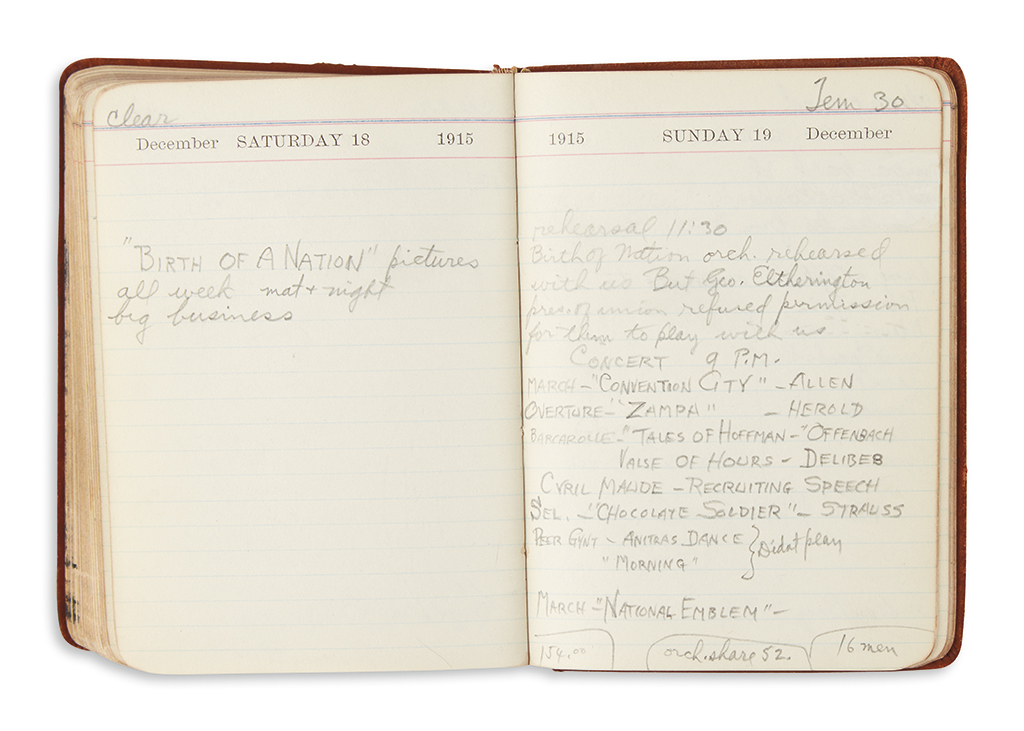 clear
December SATURDAY 18 1915
"BIRTH OF A NATION" pictures
all week mat + night
big business
Tem 30
1915 SUNDAY 19 December
rehearsal 11:30
Birth of Nation orch. rehearsed
with us But Geo. Eltherington
pres. of union refused permission
for them to play with us
CONCERT 9 P.M.
MARCH - "CONVENTION CITY" - ALLEN
OVERTURE - "ZAMPA" - HEROLD
BARCAROLLE - "TALES OF HOFFMAN - "OFFENBACH
VALSE OF HOURS - DELIBES
CYRIL MAUDE - RECRUITING SPEECH
SEL. - "CHOCOLATE SOLDIER" - STRAUSS
PEER GYNT - ANITRAS DANCE } Didnt play
"MORNING"
MARCH - "NATIONAL EMBLEM" -
154.00 orch. share 52. 16 men